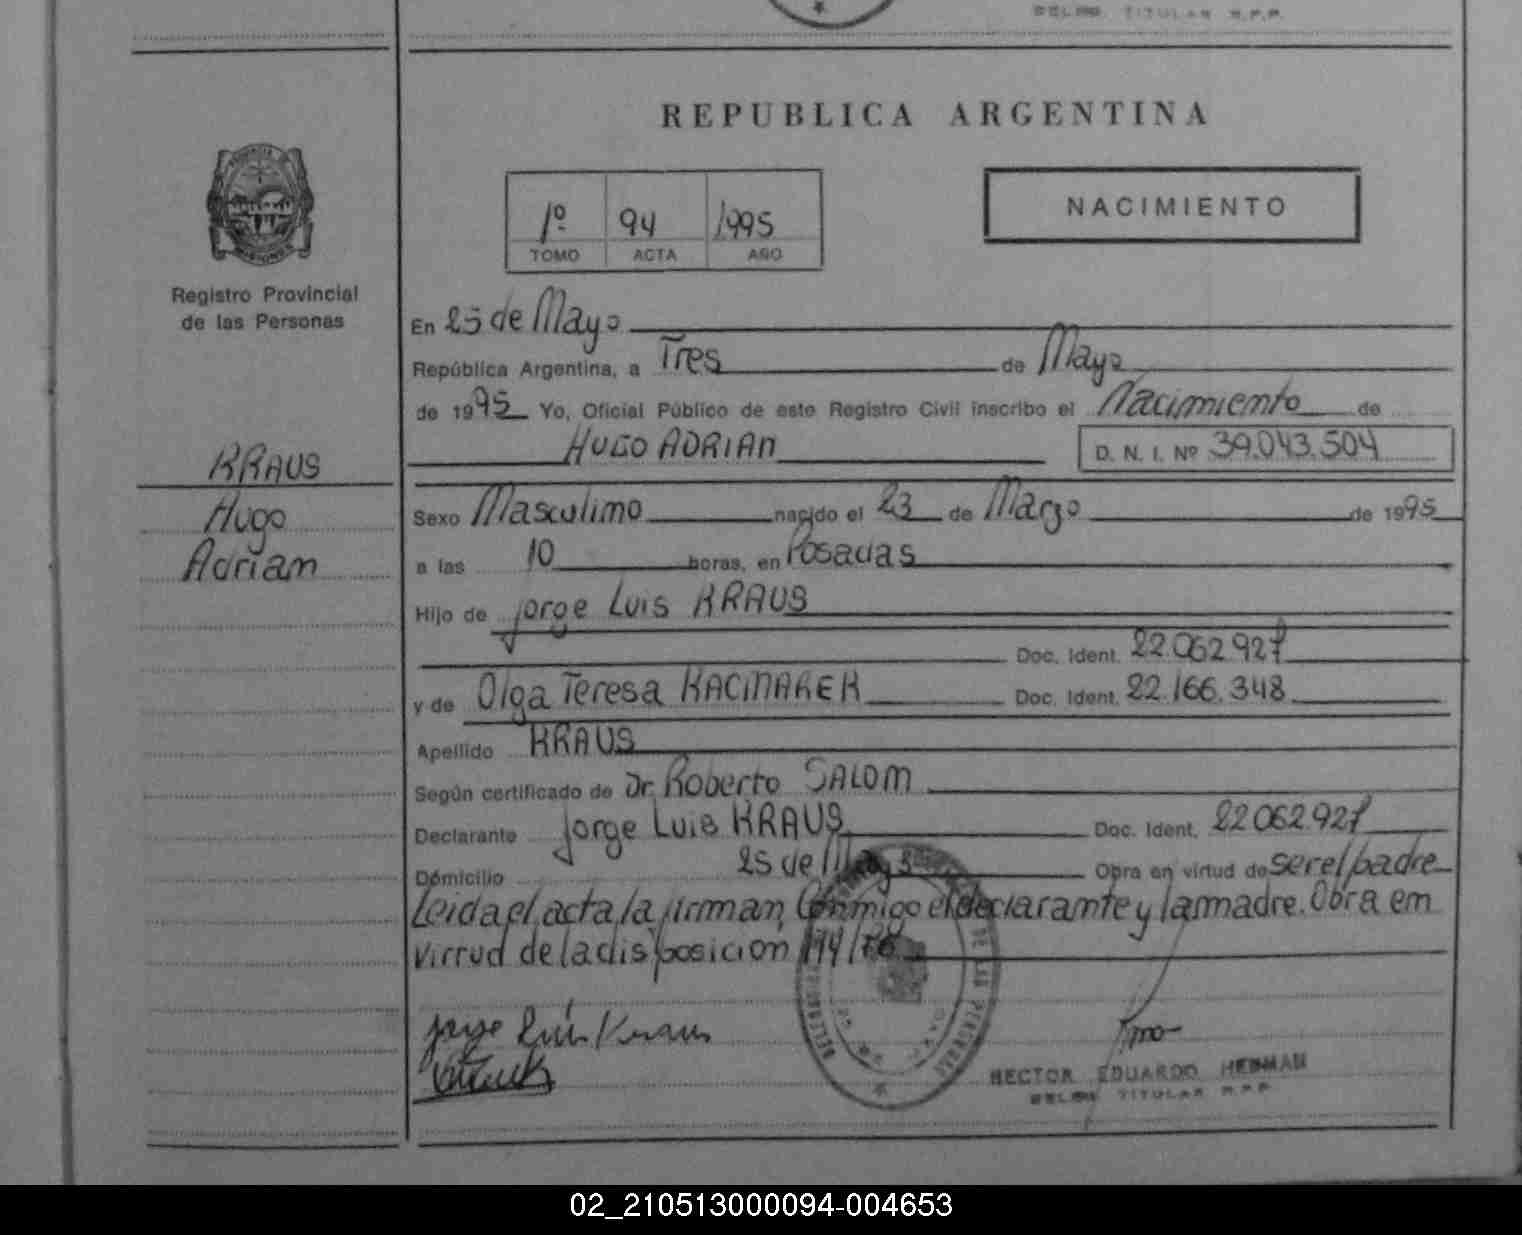 TITULAR R.P.P.
REPUBLICA ARGENTINA
1º 94 1995
TOMO ACTA AÑO
NACIMIENTO
Registro Provincial
de las Personas
En 25 de Mayo
República Argentina, a Tres de Mayo
de 1995 Yo, Oficial Público de este Registro Civil inscribo el Nacimiento de
HUGO ADRIAN D. N. I. Nº 39.043.504
KRAUS
Hugo
Adrian
Sexo Masculino nacido el 23 de Marzo de 1995
a las 10 horas, en Posadas
Hijo de Jorge Luis KRAUS
Doc. Ident. 22.062.927
y de Olga Teresa KACMAREK Doc. Ident. 22.166.348
Apellido KRAUS
Según certificado de Dr. Roberto SALOM
Declarante Jorge Luis KRAUS Doc. Ident. 22.062.927
Domicilio 25 de Mayo Obra en virtud de ser el padre
Leida el acta la firman, Conmigo el declarante y la madre. Obra em
virtud de la disposicion 194/78
Jorge Luis Kraus
HECTOR EDUARDO
TITULAR R.P.P.
02_210513000094-004653